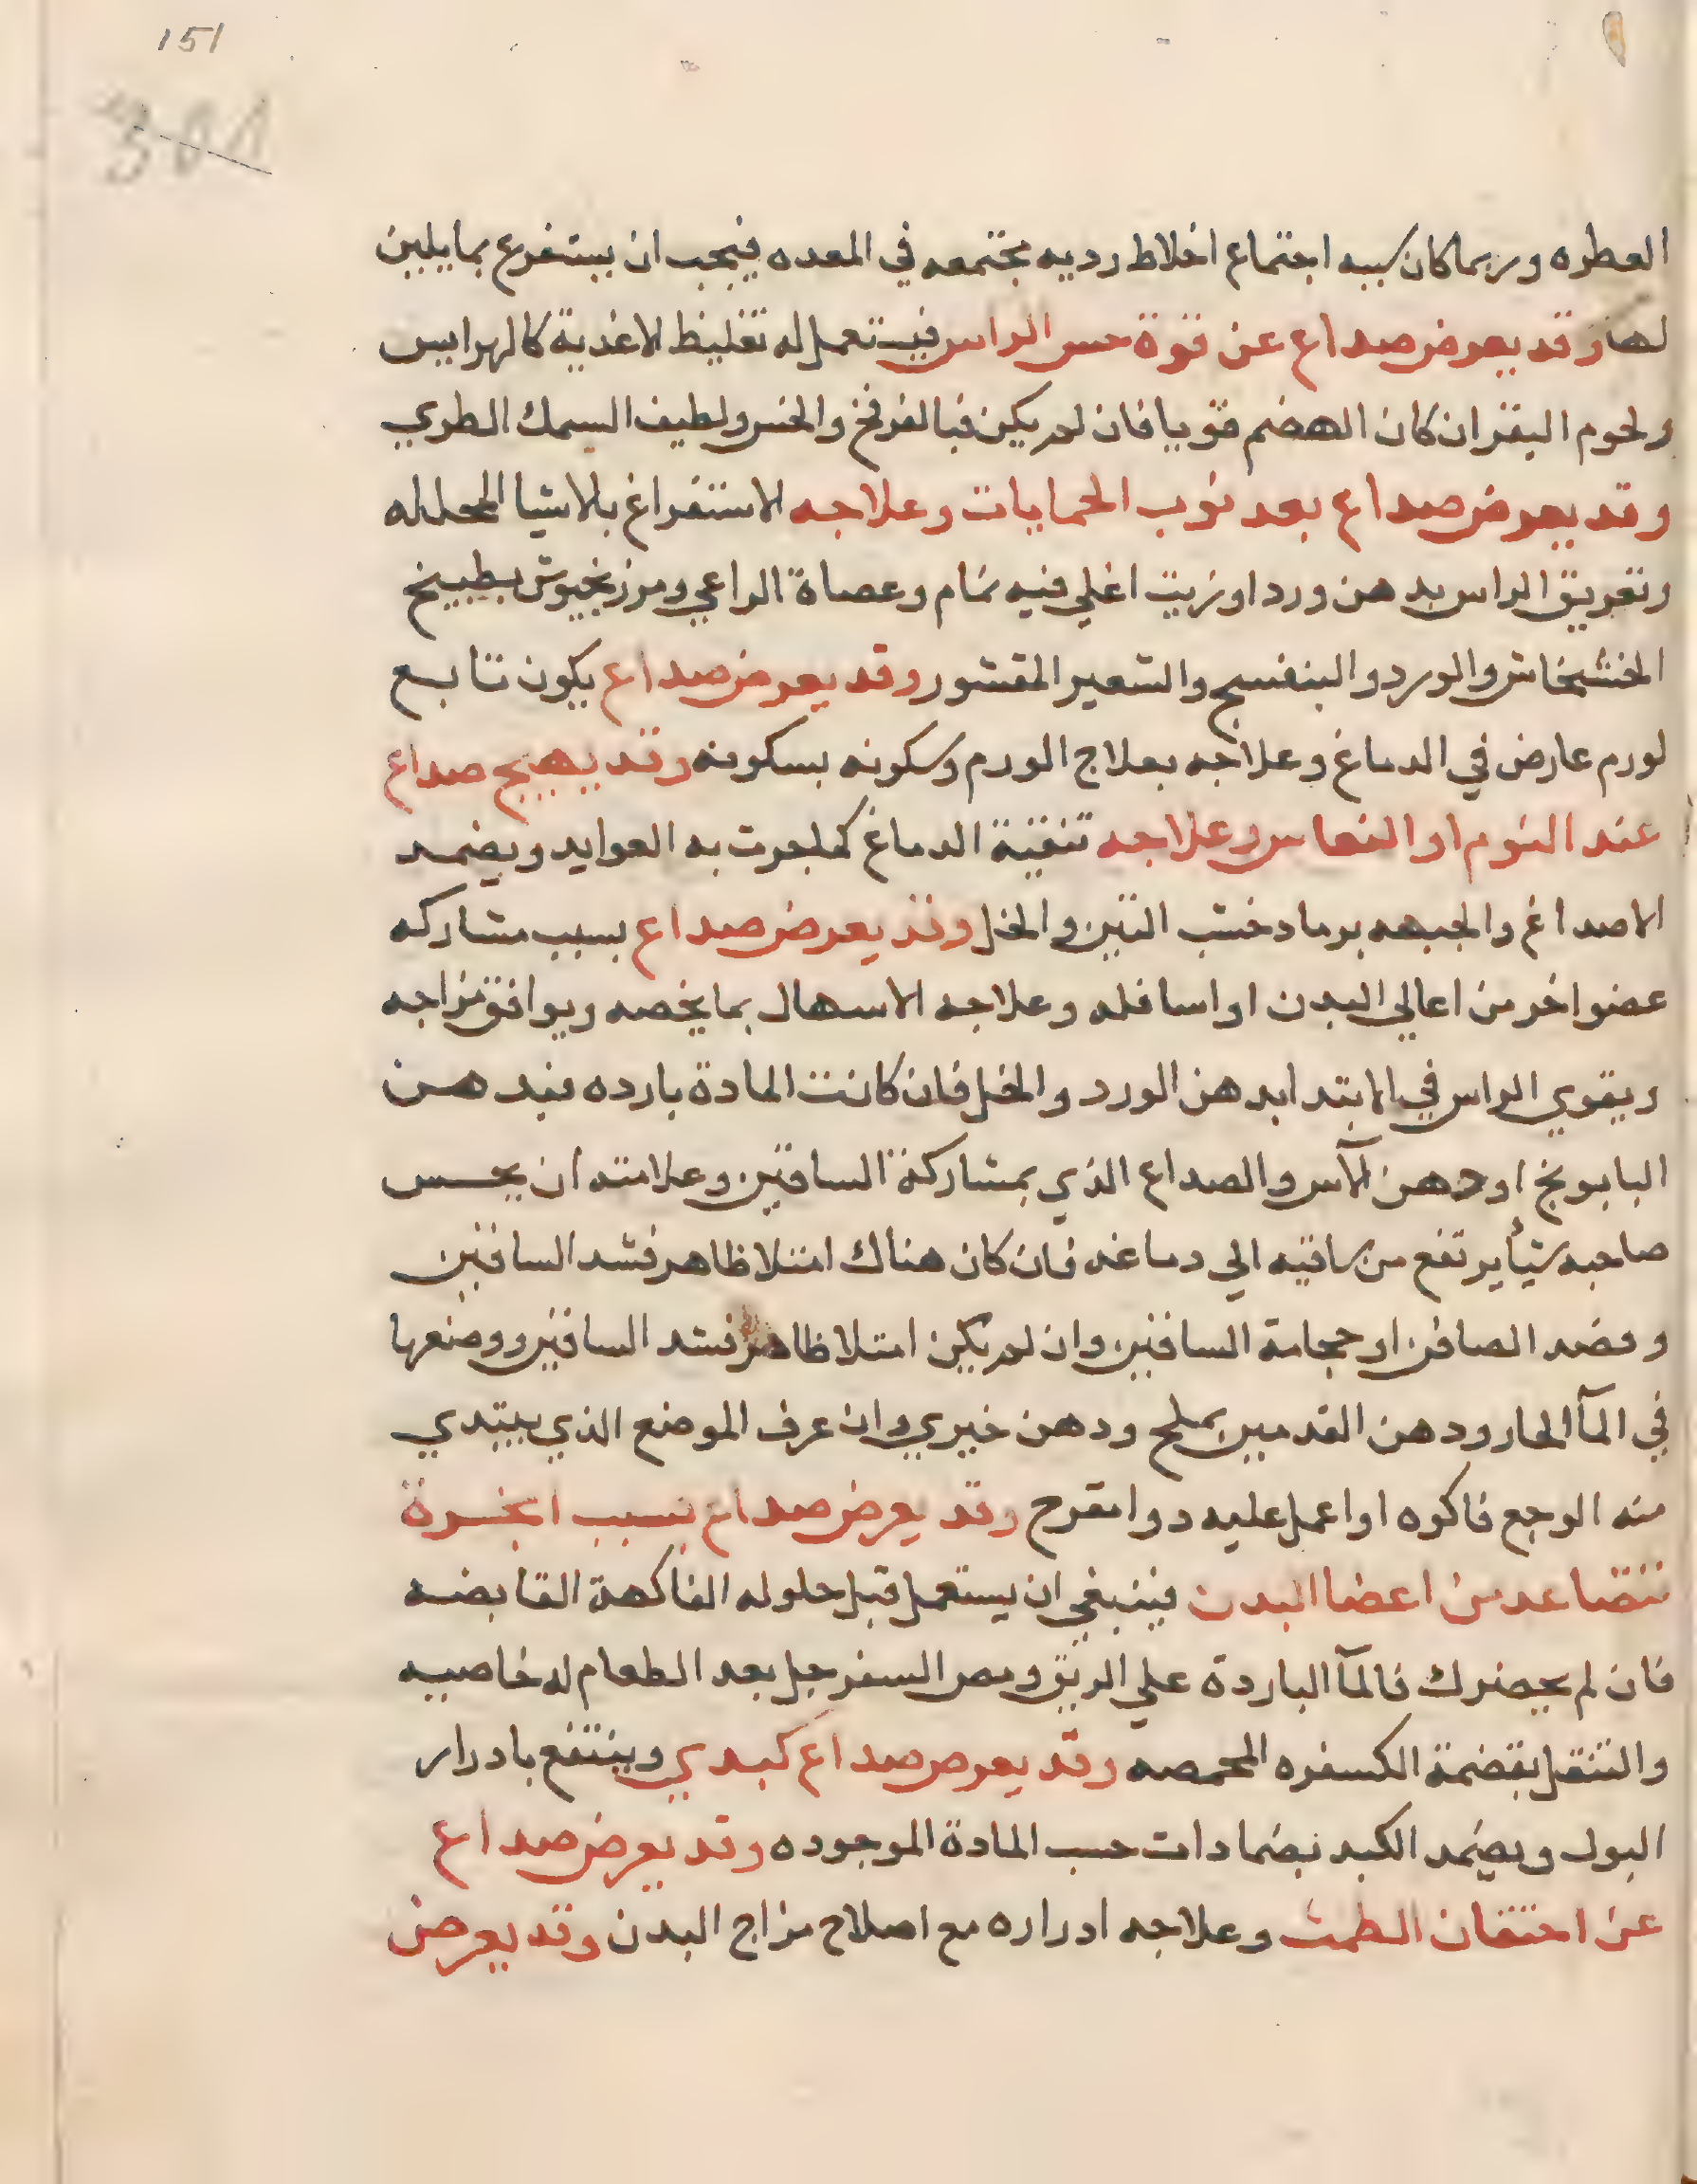 151
301
العطره وربما كان سببه اجتماع اخلاط رديه مجتمعه في المعده فيجب ان يستفرغ بما يلين
لها وقد يعرض صداع عن قوة حس الراس فيستعمل له تغليظ الاغدية كالهرايس
ولحوم البقر ان كان الهضم قويا فان لم يكن فبالفرفخ والخس ولطيف السمك الطري
وقد يعرض صداع بعد نوب الحمايات وعلاجه الاستفراغ بلاشيا المحلله
وتعريق الراس بدهن ورد او زيت اغلي فيه نمام وعصاة الراعي ومرزنجوش بطبيخ
الخشخاش والورد والبنفسج والشعير المقشور وقد يعرض صداع يكون تابع
لورم عارض في الدماغ وعلاجه بعلاج الورم وسكونه بسكونه وقد يهيج صداع
عند النوم او النعاس وعلاجه تنقية الدماغ كملجرت به العوايد ويضمد
الاصداغ والجبهه برماد خشب التين والخل وقد يعرض صداع بسبب مشاركه
عضو اخر من اعالي البدن او اسافله وعلاجه الاسهال بما يخصه ويوافق مزاجه
ويقوي الراس في الابتدا بدهن الورد والخل فان كانت المادة بارده فبدهن
البابونج او دهن الآس والصداع الذي بمشاركة الساقين وعلامته ان يحس
صاحبه شيأ يرتفع من ساقيه الي دماغه فان كان هناك امتلا ظاهر فشد الساقين
وفصد الصافن او حجامة الساقين وان لم يكن امتلا ظاهر فشد الساقين ووضعها
في المآ الحار ودهن القدمين بملح ودهن خيري وان عرف الموضع الذي يبتدي
منه الوجع فاكوه او اعمل عليه دوا مقرح وقد يعرض صداع بسبب ابخرة
تتصاعد من اعضا البدن فينبغي ان يستعمل قبل حلوله الفاكهة القابضه
فان لم يحضرك فالمآ الباردة علي الريق ومص السفرجل بعد الطعام له خاصيه
والتنقل بقضمة الكسفره المحمصه وقد يعرض صداع كبدي وينتفع بادرار
البول ويضمد الكبد بضمادات حسب المادة الموجوده وقد يعرض صداع
عن احتقان الطمث وعلاجه ادراره مع اصلاح مزاج البدن وقد يعرض